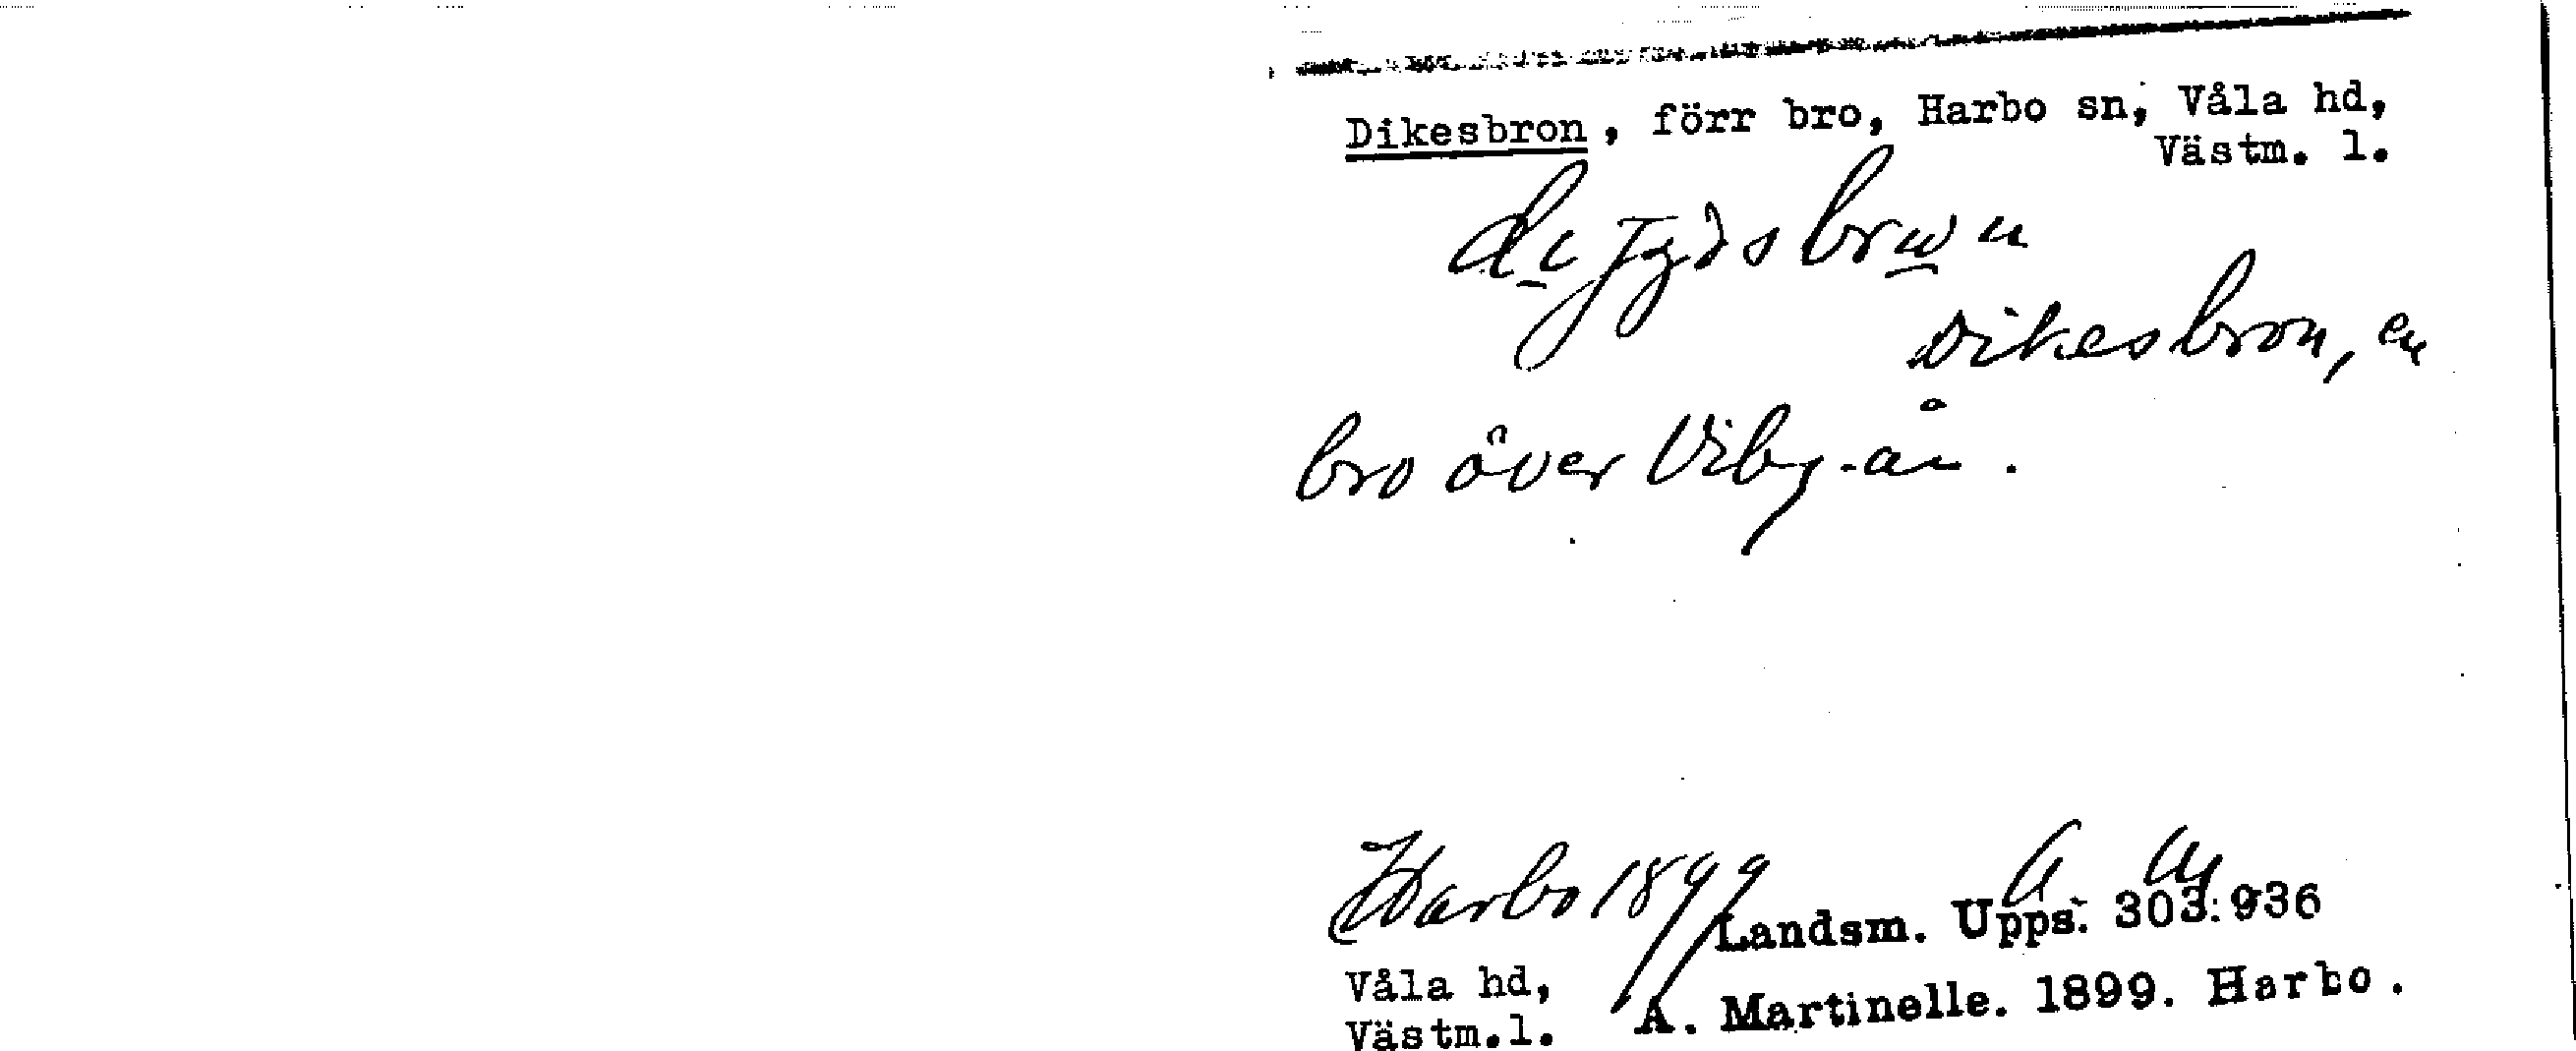 Dikesbron, förr bro, Harbo sn, Våla hd,
Västm. l.
Dikesbron, en
bro över Viby-ån.
Harbo 1899 A M
Landsm. Upps. 303:936
Våla hd,
Västm.l.
A. Martinelle. 1899. Harbo.